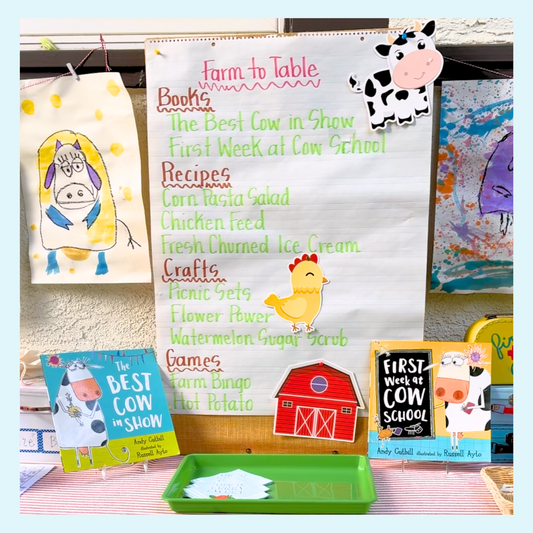 Farm to Table
Books
The Best Cow in Show
First Week at Cow School
Recipes
Corn Pasta Salad
Chicken Feed
Fresh Churned Ice Cream
Crafts
Picnic Sets
Flower Power
Watermelon Sugar Scrub
Games
Farm Bingo
Hot Potato
The
BEST
COW
in SHOW
Andy Cutbill
illustrated by Russell Ayto
FIRST
Week at
COW
SCHOOL
Andy Cutbill illustrated by Russell Ayto